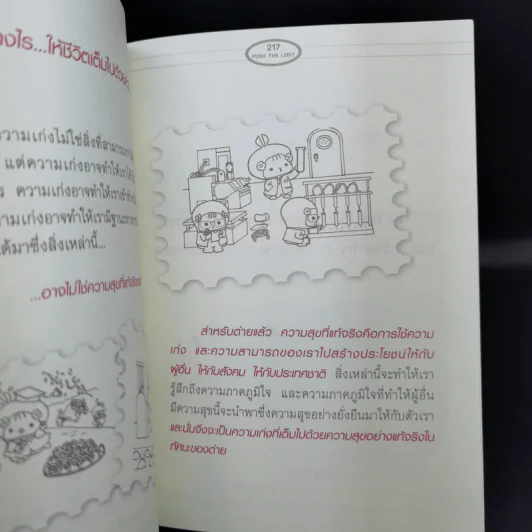 ...ให้ชีวิตเต็มไปด้วย
ความเก่งไม่ใช่สิ่งที่สามารถ
แต่ความเก่งอาจทำให้เรา
ความเก่งอาจทำให้เรา
ความเก่งอาจทำให้เรามีฐานะ
ได้มาซึ่งสิ่งเหล่านี้...
...อาจไม่ใช่ความสุขที่แท้จริง
217
PUSH THE LIMIT
สำหรับต่ายแล้ว ความสุขที่แท้จริงคือการใช้ความ
เก่ง และความสามารถของเราไปสร้างประโยชน์ให้กับ
ผู้อื่น ให้กับสังคม ให้กับประเทศชาติ สิ่งเหล่านี้จะทำให้เรา
รู้สึกถึงความภาคภูมิใจ และความภาคภูมิใจที่ทำให้ผู้อื่น
มีความสุขนี้จะนำพาซึ่งความสุขอย่างยั่งยืนมาให้กับตัวเรา
และนั่นจึงจะเป็นความเก่งที่เต็มไปด้วยความสุขอย่างแท้จริงใน
ทัศนะของต่าย